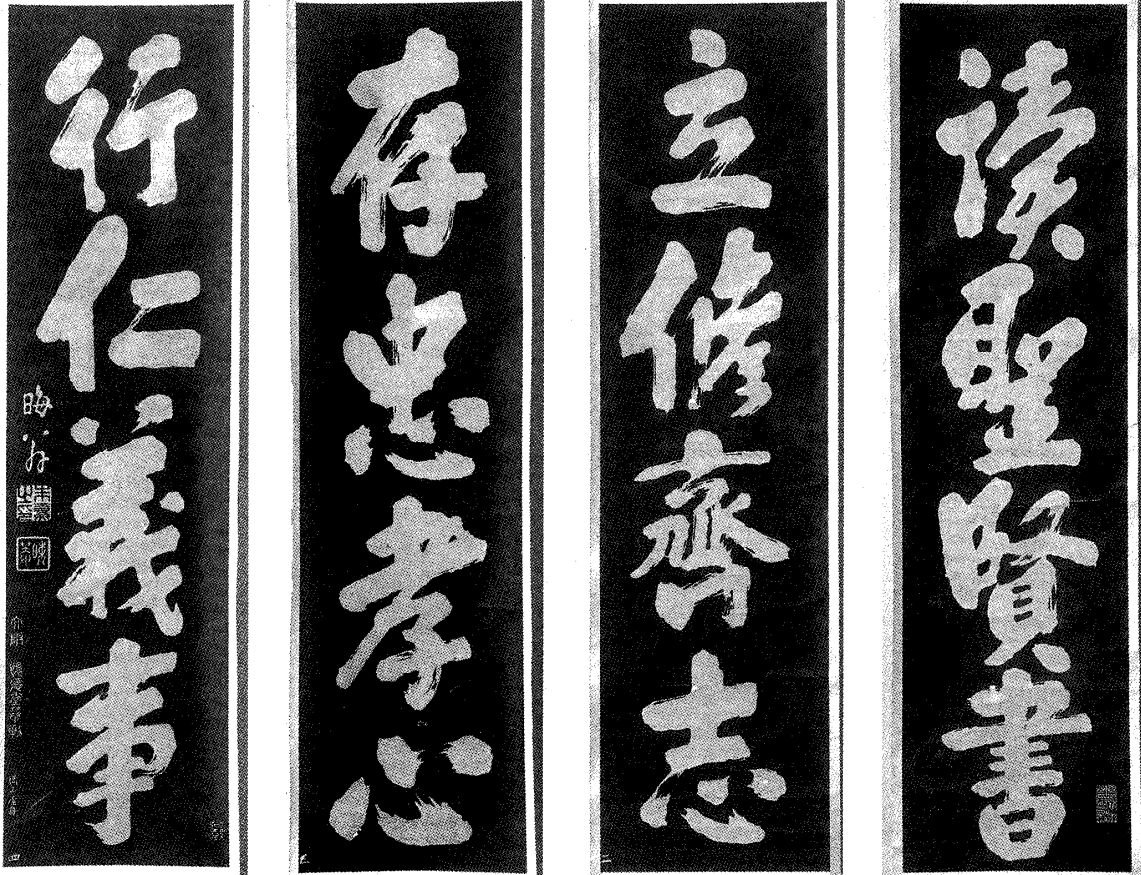 讀聖賢書
立脩齊志
存忠孝心
行仁義事
晦翁